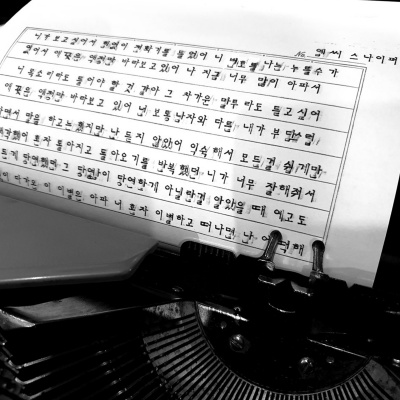 No. 엠씨 스나이퍼
니가 보고싶어서 하염없이 전화기를 들었어 니 번호를 나는 누를수가
없어서 애꿎은 액정만 바라보고있어 나 지금 너무 많이 아파서
니 목소리라도 들어야 할 것 같아 그 차가운 말투라도 듣고 싶어
애꿎은 액정만 바라보고 있어 넌 보통남자와 다른 내가 부담스럽
말을 하고는 했지만 난 듣지 않았어 익숙해서 모든걸 쉽게만
혼자 돌아지고 돌아오기를 반복했던 니가 너무 잘해줘서
당연했고 그 당연함이 당연한게 아닐란걸 알았을 때 예고도
이 이별은 아파 니 혼자 이별하고 떠나면 난 어떡해